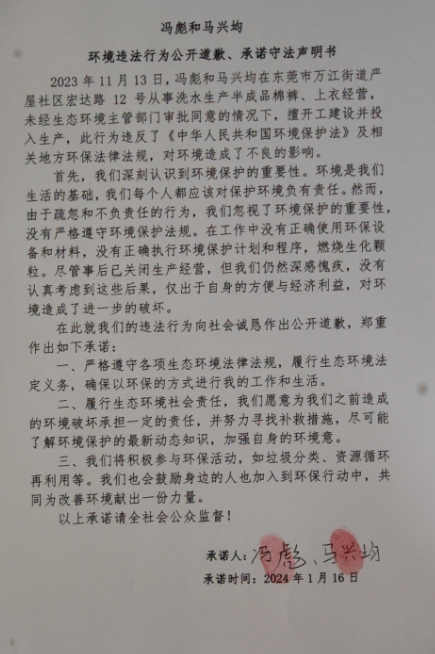 冯彪和马兴均
环境违法行为公开道歉、承诺守法声明书
2023 年 11 月 13 日，冯彪和马兴均在东莞市万江街道严
屋社区宏达路 12 号从事洗水生产半成品棉裤、上衣经营，
未经生态环境主管部门审批同意的情况下，擅开工建设并投
入生产，此行为违反了《中华人民共和国环境保护法》及相
关地方环保法律法规，对环境造成了不良的影响。
首先，我们深刻认识到环境保护的重要性。环境是我们
生活的基础，我们每个人都应该对保护环境负有责任。然而，
由于疏忽和不负责任的行为，我们忽视了环境保护的重要性，
没有严格遵守环境保护法规。在工作中没有正确使用环保设
备和材料，没有正确执行环境保护计划和程序，燃烧生化颗
粒。尽管事后已关闭生产经营，但我们仍然深感愧疚，没有
认真考虑到这些后果，仅出于自身的方便与经济利益，对环
境造成了进一步的破坏。
在此就我们的违法行为向社会诚恳作出公开道歉，郑重
作出如下承诺：
一、严格遵守各项生态环境法律法规，履行生态环境法
定义务，确保以环保的方式进行我的工作和生活。
二、履行生态环境社会责任，我们愿意为我们之前造成
的环境破坏承担一定的责任，并努力寻找补救措施，尽可能
了解环境保护的最新动态知识，加强自身的环境意。
三、我们将积极参与环保活动，如垃圾分类、资源循环
再利用等。我们也会鼓励身边的人也加入到环保行动中，共
同为改善环境献出一份力量。
以上承诺请全社会公众监督！
承诺人：冯彪、马兴均
承诺时间：2024 年 1 月 16 日